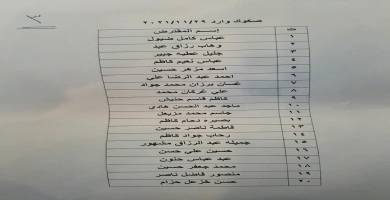 صكوك وارد ٢٠٢١/١١/٢٩
ت إسم المقترض
١ عباس كامل ضيول
٢ وهاب رزاق عبد
٣ جليل عطيه جبير
٤ عباس نعيم كاظم
٥ اسعد مزهر حسين
٦ احمد عبد الرضا علي
٧ غسان برزان محمد جواد
٨ علي عركان محمد
٩ كاظم قاسم حنيش
١٠ ماجد عبد الحسن هادي
١١ جاسم محمد مزيعل
١٢ بصيره نجام كاظم
١٣ فاطمة ناصر حسين
١٤ رحاب جواد كاظم
١٥ جميله عبد الرزاق مشهور
١٦ حسين علي حسن
١٧ عبد عباس حنون
١٨ محمد جعفر حسين
١٩ منصور فاضل ناصر
٢٠ حسن خزعل حزام